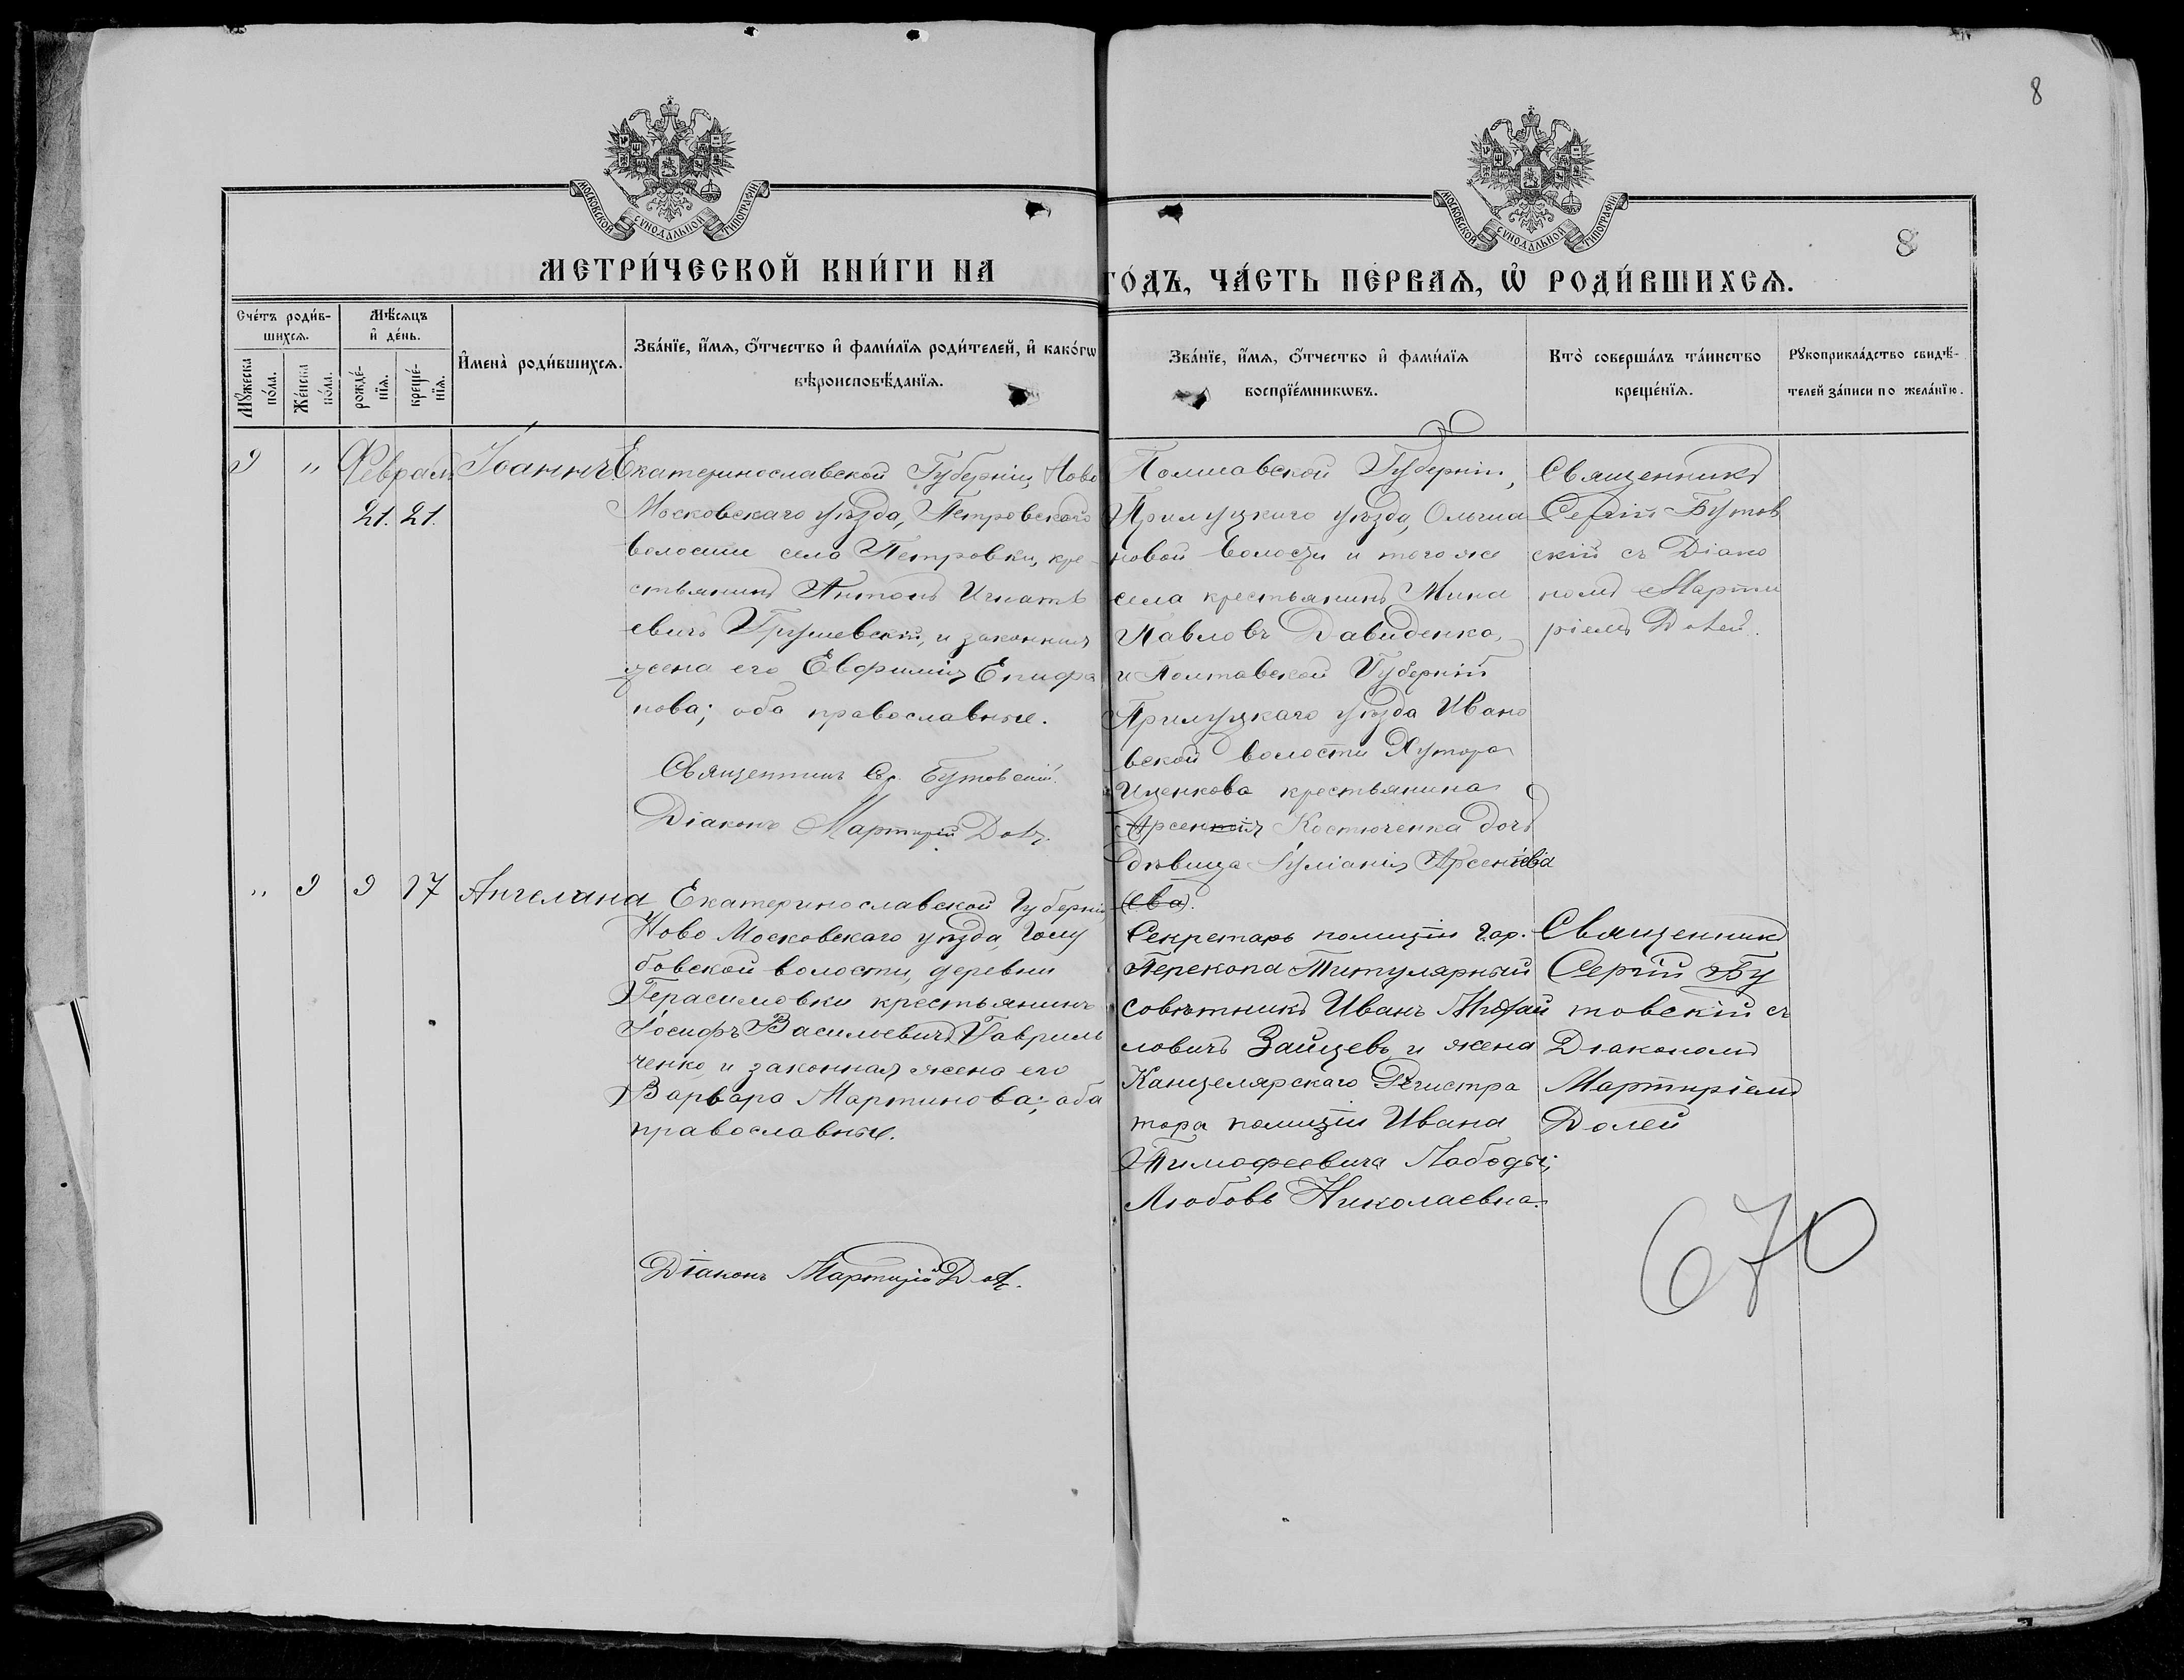 8
МОСКОВСКОЙ СУНОДАЛЬНОЙ ТИПОГРАФІИ
МОСКОВСКОЙ СУНОДАЛЬНОЙ ТИПОГРАФІИ
8
МЕТРИ́ЧЕСКОЙ КНИ́ГИ НА ГО́ДЪ, ЧА́СТЬ ПЕ́РВАѦ, Ѡ҆ РОДИ́ВШИХСѦ.
Сче́тъ роди́в-
шихсѧ.
Мѣ́сѧцъ
и҆ де́нь.
Мꙋ́жеска
по́ла.
Же́нска
по́ла.
рожде́-
нїѧ.
креще́-
нїѧ.
И҆мена̀ роди́вшихсѧ.
Зва́нїе, и҆́мѧ, ѻ҆́тчество и҆ фамі́лїѧ роди́телей, и҆ како́гѡ
вѣроисповѣ́данїѧ.
Зва́нїе, и҆́мѧ, ѻ҆́тчество и҆ фамі́лїѧ
воспрїе́мникѡвъ.
Кто̀ соверша́лъ та́инство
креще́нїѧ.
Рꙋкоприкла́дство свидѣ́-
телей за́писи по жела́нїю.
9 " Феврал. 21. 21. Іоаннъ
Екатеринославской Губерніи, Ново
Московскаго уѣзда, Петровской
волости села Петровки, кре-
стьянинъ Антонъ Игнатье
евичъ Грушевскій, и законная
жена его Евфимія Епифа
нова; оба православные.
Священникъ Ср. Бутовскій.
Діаконъ Мартирій
Полтавской Губерніи,
Прилуцкаго уѣзда, Ольша
новой волости и того же
села крестьянинъ Мина
Павловъ Давиденко,
и Полтавской Губерніи
Прилуцкаго уѣзда Ивано
вской волости Хутора
Иценкова крестьянина
Арсенія Костюченка дочь
дѣвица Іуліанія Арсеніева
(ева).
Священникъ
Сергій Бутов
скій съ Діако
номъ Марти
ріемъ Долей.
" 9 9 17 Ангелина
Екатеринославской Губерніи,
Ново Московскаго уѣзда, Голу
бовской волости, деревни
Герасимовки крестьянинъ
Іосифъ Васильевичъ Гаврил
ченко, и законная жена его
Варвара Мартинова; оба
православные.
Діаконъ Мартирій
Секретарь полиціи гор.
Перекопа Титулярный
Совѣтникъ Иванъ Михай
ловичъ Зайцевъ, и жена
Канцелярскаго Регистра
тора полиціи Ивана
Тимофеевича Лободы,
Любовь Николаевна.
Священникъ
Сергій Бу
товскій съ
Діакономъ
Мартиріемъ
Долей
670